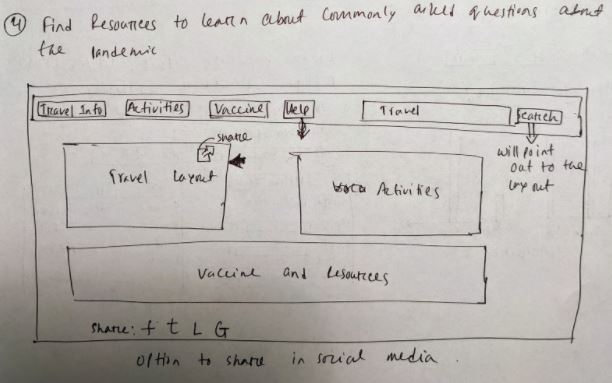 4 Find Resources to learn about Commonly asked questions about
the Pandemic
Travel Info Activities Vaccine Help Travel Search
share
will point
out to the
layout
Travel Layout
Activities
Vaccine and Resources
Share: f t L G
Option to share in social media.